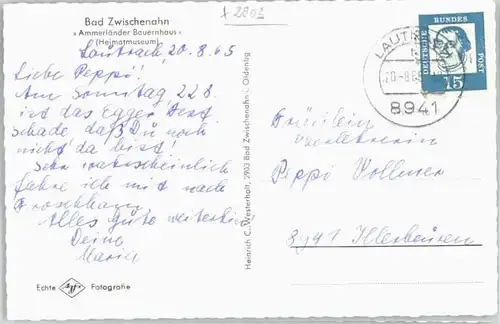 x 2802
Bad Zwischenahn
» Ammerländer Bauernhaus «
(Heimatmuseum)
Lautrach, 20.8.65
Liebe Peppi!
Am Sonntag 22.8.
ist das Egger Fest.
Schade, daß Du noch
nicht da bist!
Sehr wahrscheinlich
fahre ich mit nach
Alles Gute weiterhin
Deine
Maria
Echte Agfa Fotografie
Heinrich C. Westerholt, 2903 Bad Zwischenahn i. Oldenbg
LAUTRACH
20-8.65
8941
DEUTSCHE BUNDES POST
15
Fräulein
Peppi Vollmer
8941 Illerbeuren